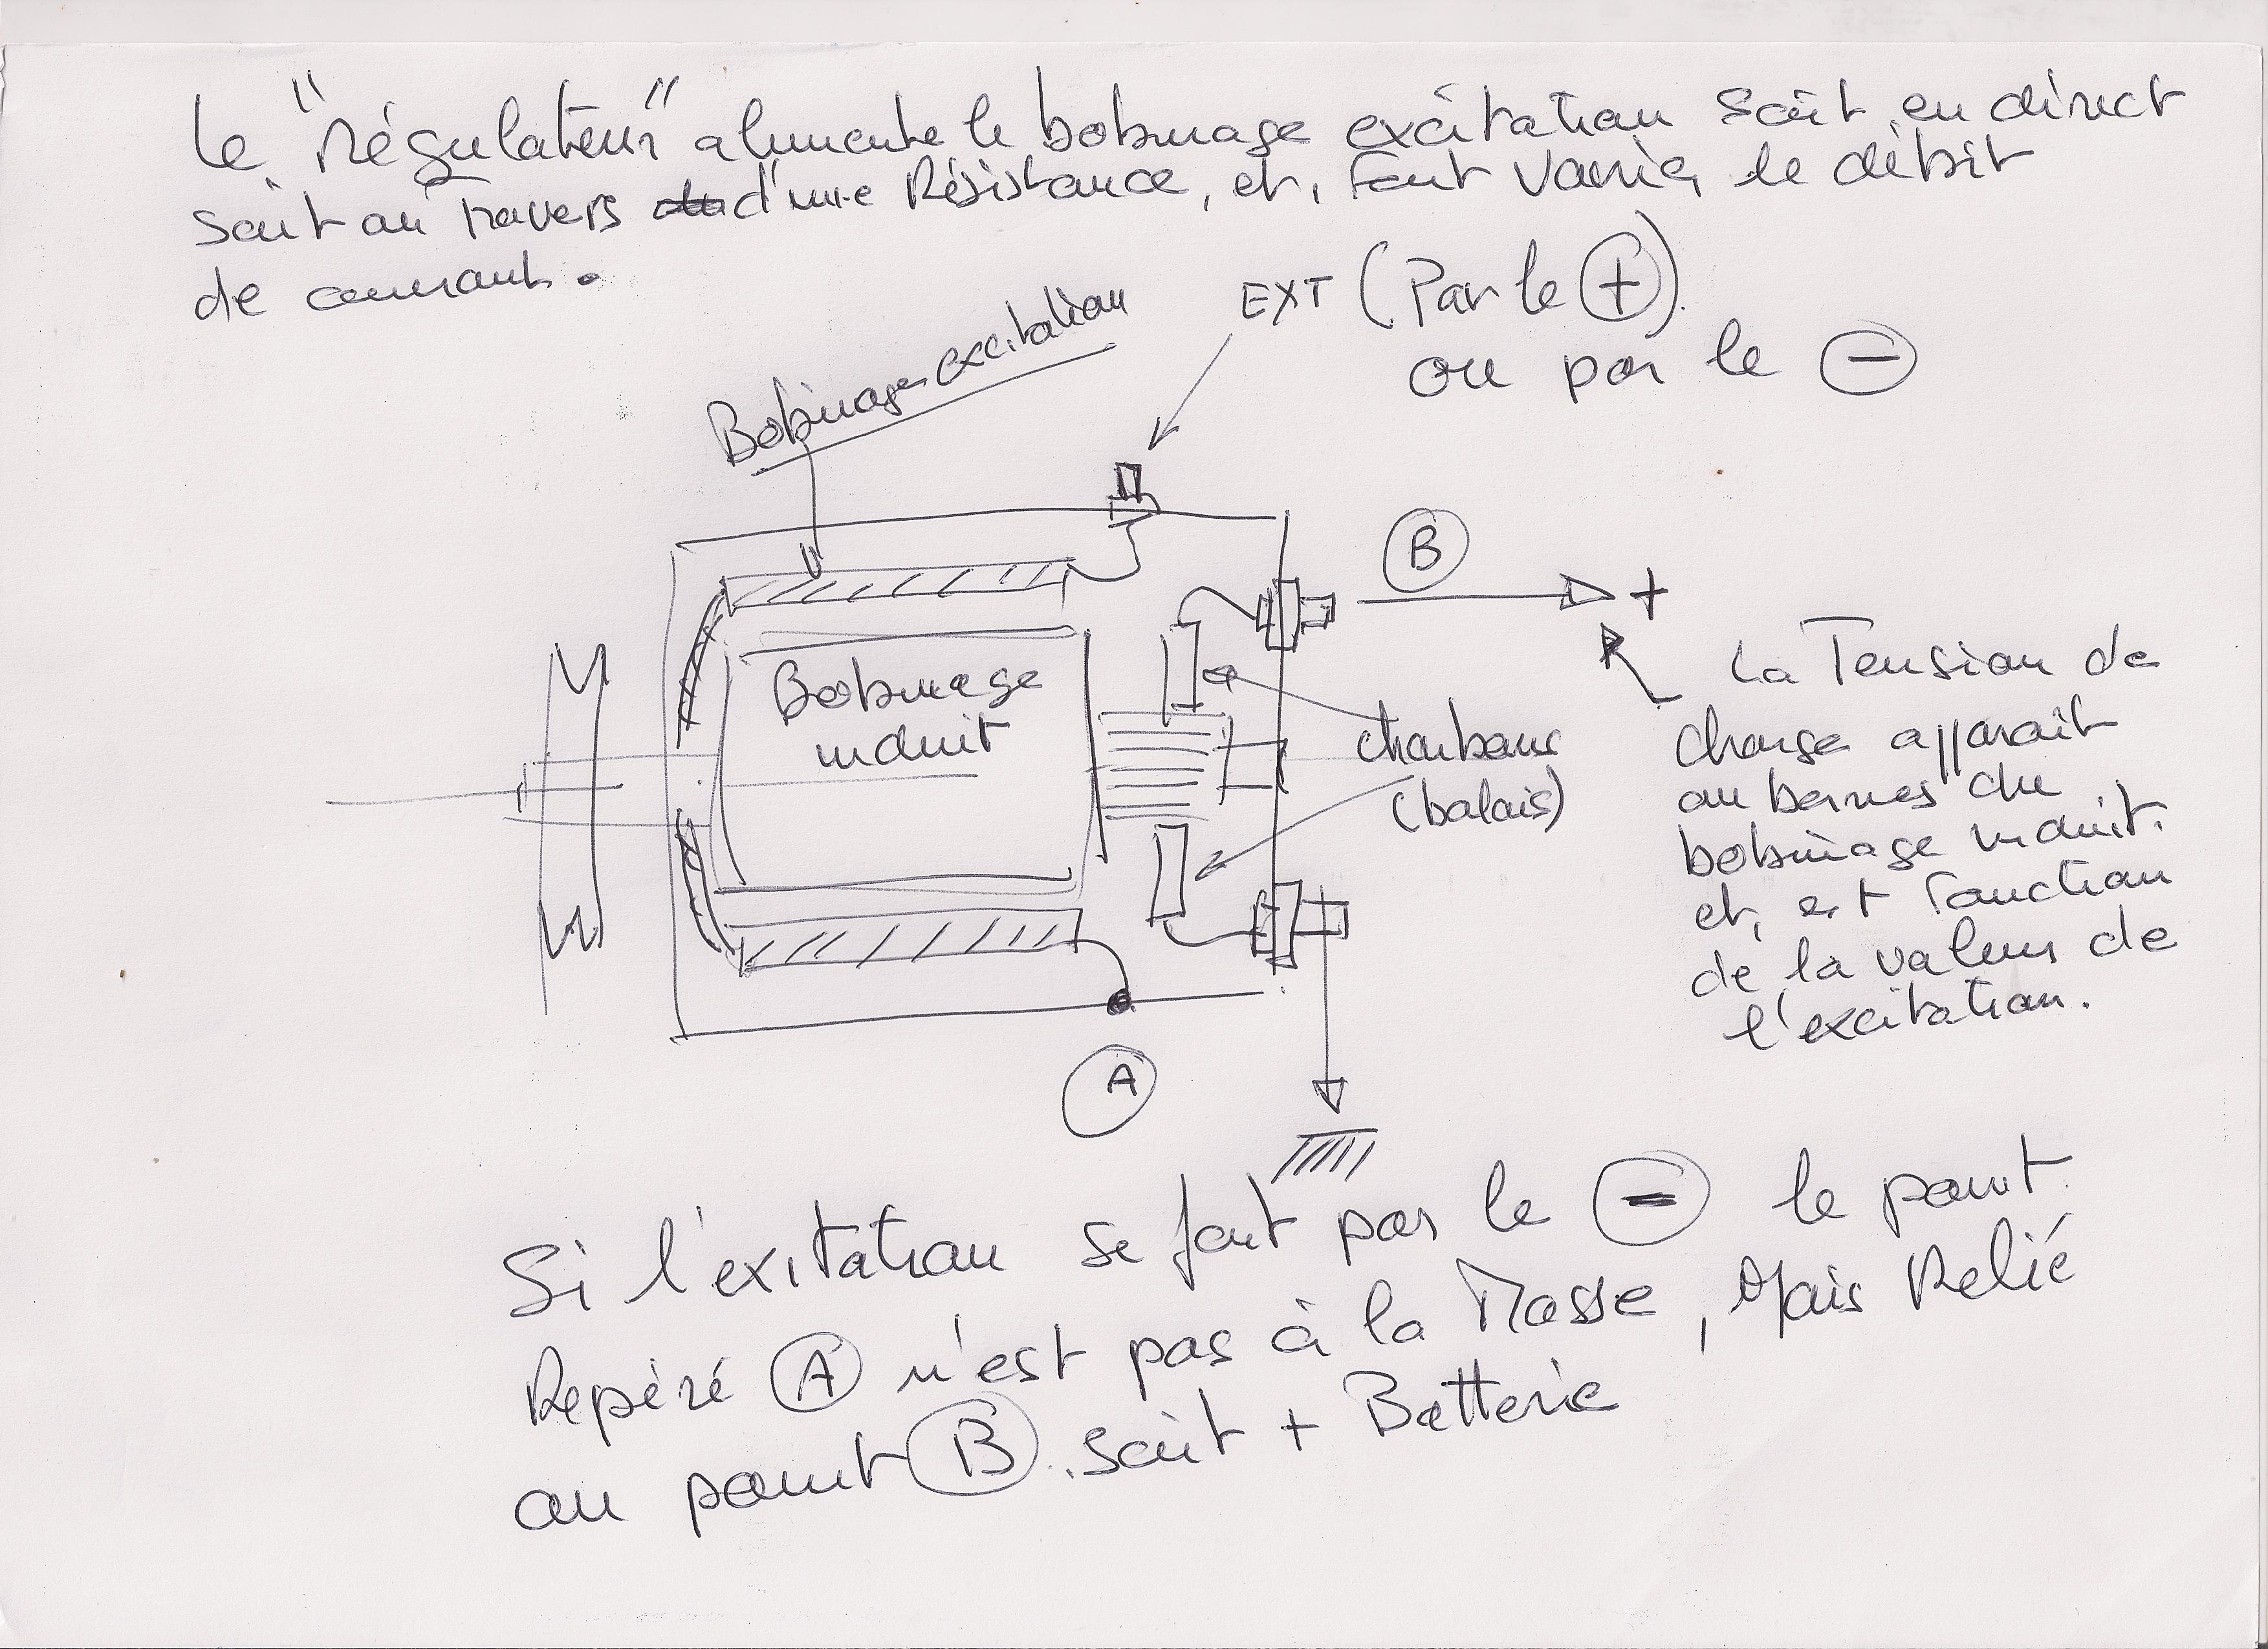 Le "Régulateur" alimente le bobinage excitation soit en direct
soit au travers d'une Résistance, et, fait varier le débit
de courant.
EXT (Par le +)
ou par le -
Bobinage excitation
B
+
Bobinage
induit
charbons
(balais)
La Tension de
charge apparait
au bornes du
bobinage induit.
et, est fonction
de la valeur de
l'excitation.
A
Si l'exitation se fait par le - le point
Repéré A n'est pas à la Masse, Mais Relié
au point B. soit + Batterie